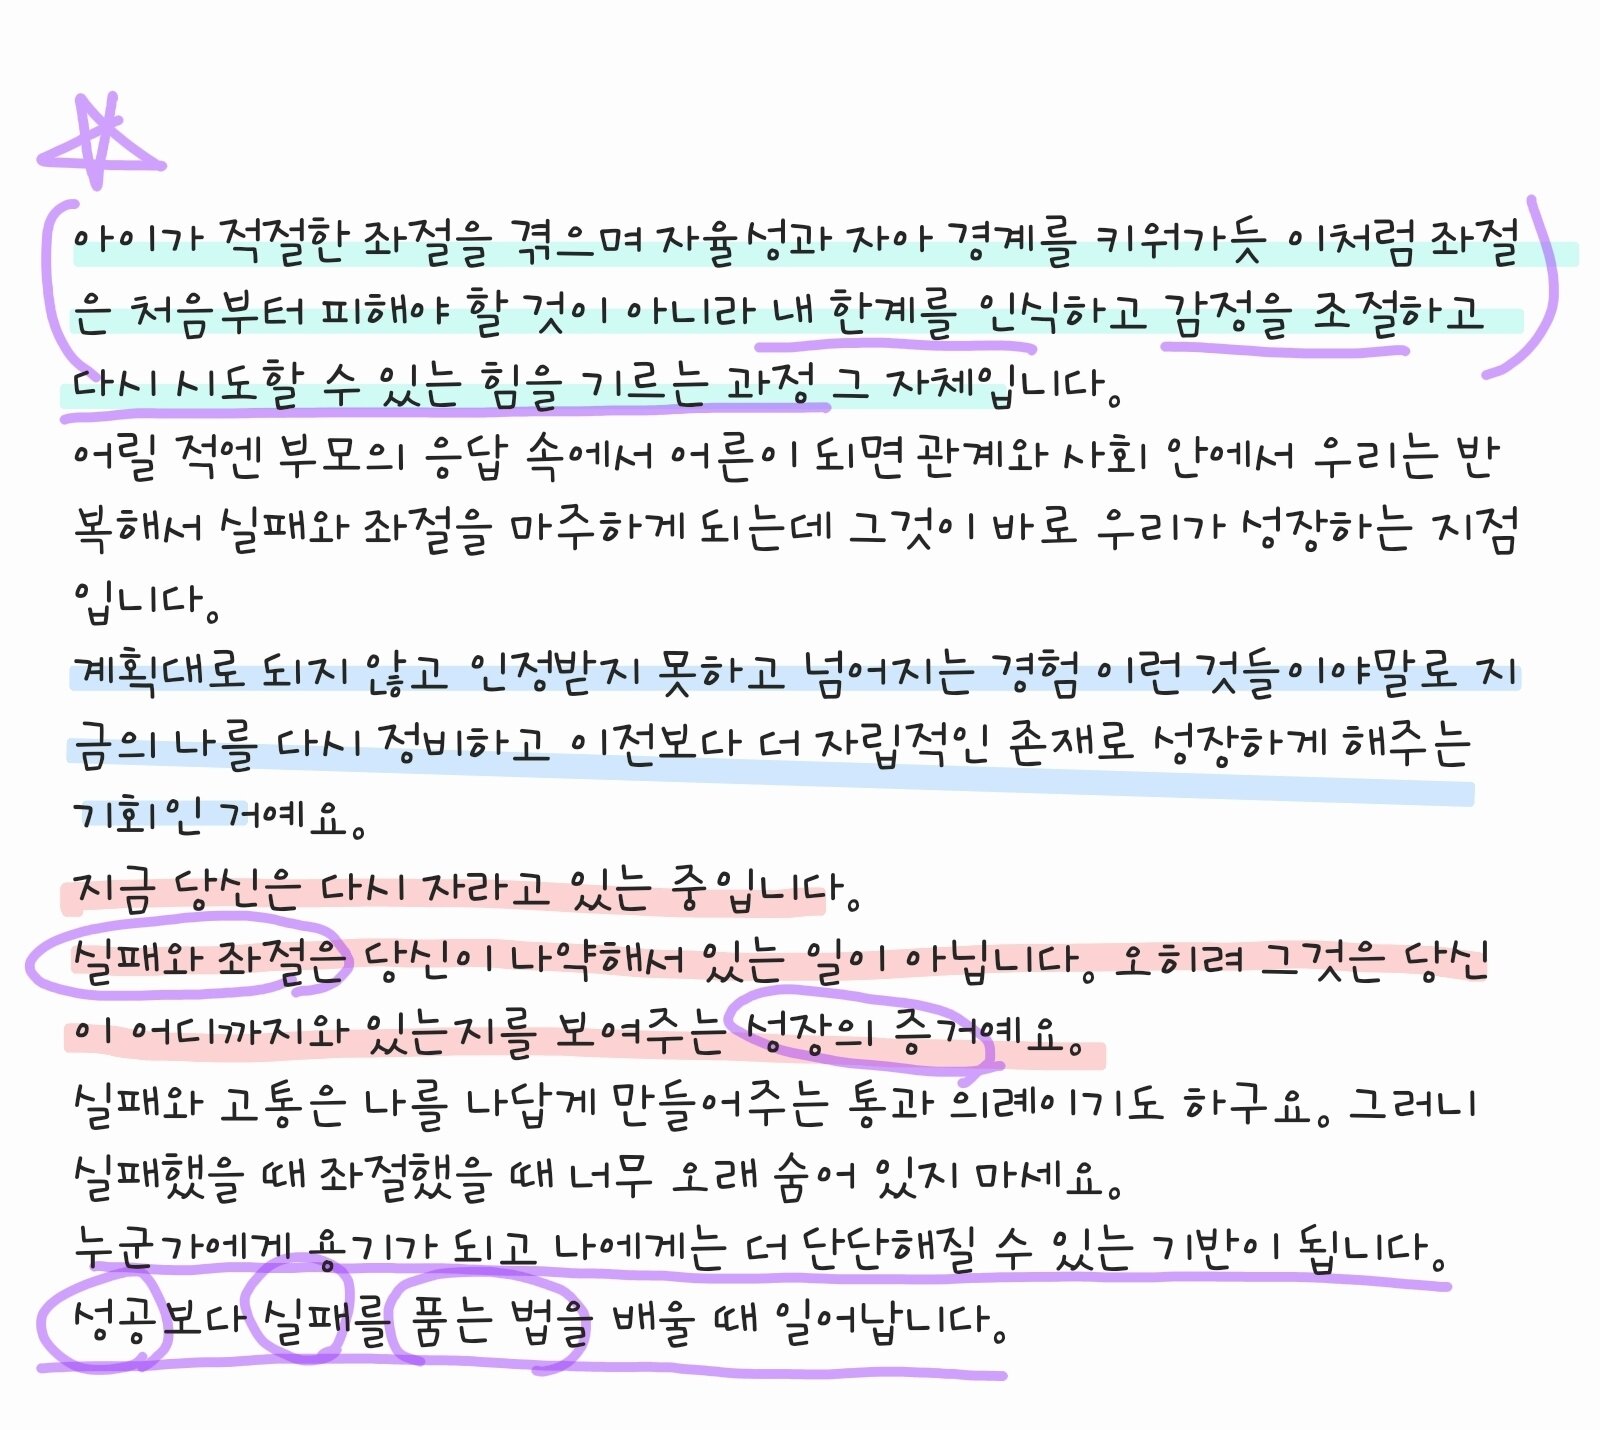 아이가 적절한 좌절을 겪으며 자율성과 자아 경계를 키워가듯 이처럼 좌절
은 처음부터 피해야 할 것이 아니라 내 한계를 인식하고 감정을 조절하고
다시 시도할 수 있는 힘을 기르는 과정 그 자체입니다.
어릴 적엔 부모의 응답 속에서 어른이 되면 관계와 사회 안에서 우리는 반
복해서 실패와 좌절을 마주하게 되는데 그것이 바로 우리가 성장하는 지점
입니다.
계획대로 되지 않고 인정받지 못하고 넘어지는 경험 이런 것들이야말로 지
금의 나를 다시 정비하고 이전보다 더 자립적인 존재로 성장하게 해주는
기회인 거예요.
지금 당신은 다시 자라고 있는 중입니다.
실패와 좌절은 당신이 나약해서 있는 일이 아닙니다. 오히려 그것은 당신
이 어디까지와 있는지를 보여주는 성장의 증거예요.
실패와 고통은 나를 나답게 만들어주는 통과 의례이기도 하구요. 그러니
실패했을 때 좌절했을 때 너무 오래 숨어 있지 마세요.
누군가에게 용기가 되고 나에게는 더 단단해질 수 있는 기반이 됩니다.
성공보다 실패를 품는 법을 배울 때 일어납니다.